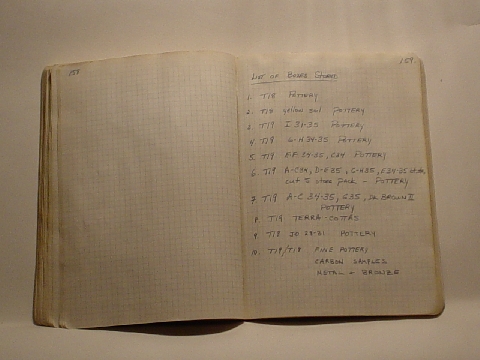 158
159
List of Boxes Stored
1. T18 Pottery
2. T18 yellow soil Pottery
3 T19 I 34-35 Pottery
4. T18 G-H 34-35 Pottery
5. T19 EF 34-35, C34 Pottery
6 T19 A-C34, D-E35, G-H35,
cut to Pottery
7 T19 A-C 34-35, E35, Dk Brown II
Pottery
8. T19 Terra-cottas
9 T18 30-31 Pottery
10. T19/T18 Fine Pottery
Carbon Samples
Metal + Bronze